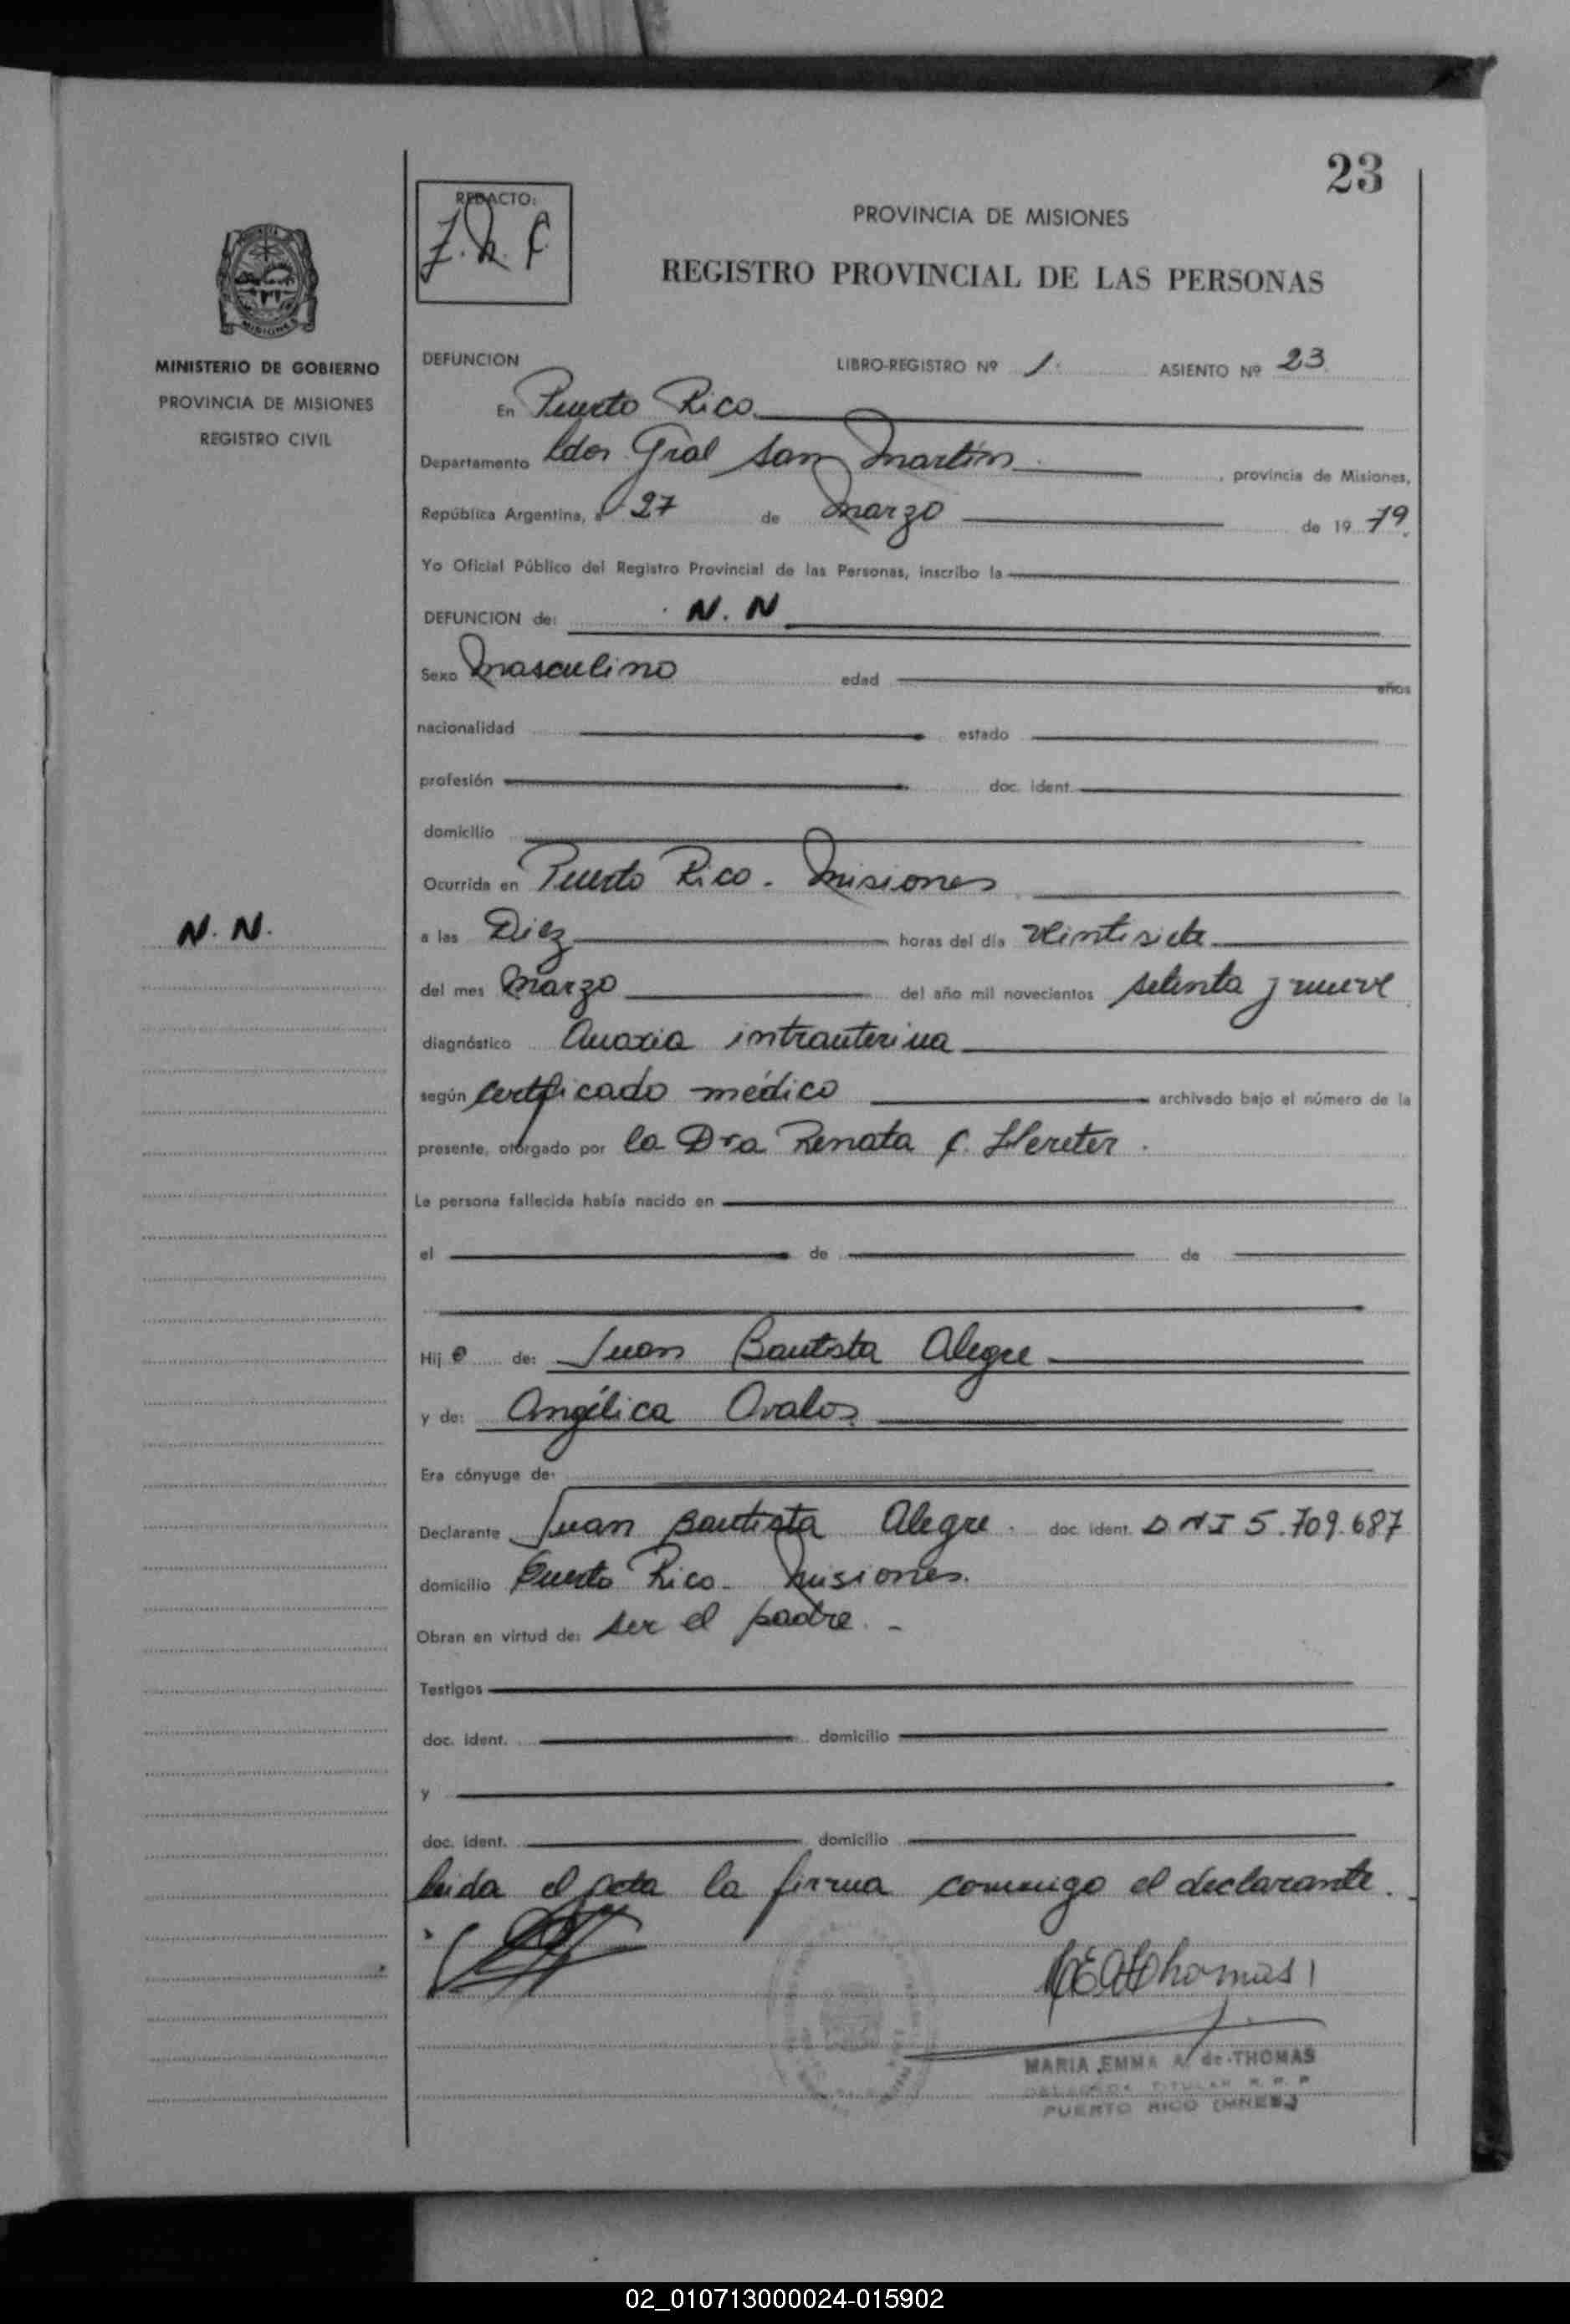 23
REDACTO:
PROVINCIA DE MISIONES
REGISTRO PROVINCIAL DE LAS PERSONAS
MISIONES
MINISTERIO DE GOBIERNO
PROVINCIA DE MISIONES
REGISTRO CIVIL
DEFUNCION LIBRO-REGISTRO Nº 1. ASIENTO Nº 23
En Puerto Rico
Departamento Ldor Gral San Martín , provincia de Misiones,
República Argentina, a 27 de Marzo de 19 79.
Yo Oficial Público del Registro Provincial de las Personas, inscribo la
DEFUNCION de: N. N
Sexo Masculino edad años
nacionalidad estado
profesión doc. ident.
domicilio
Ocurrida en Puerto Rico - Misiones
N. N.
a las Diez horas del día veintisiete
del mes Marzo del año mil novecientos setenta y nueve
diagnóstico Anoxia intrauterina
según certificado médico archivado bajo el número de la
presente, otorgado por la Dra Renata C. Hereter.
La persona fallecida había nacido en
el de de
Hij o de: Juan Bautista Alegre
y de: Angélica Ovalos
Era cónyuge de:
Declarante Juan Bautista Alegre. doc. ident. DNI 5.709.687
domicilio Puerto Rico - Misiones.
Obran en virtud de: ser el padre. -
Testigos
doc. ident. domicilio
y
doc. ident. domicilio
leida el acta la firma conmigo el declarante.
MARIA EMMA A. de THOMAS
DELEGADA TITULAR R. P. P
PUERTO RICO (MNES.)
02_010713000024-015902